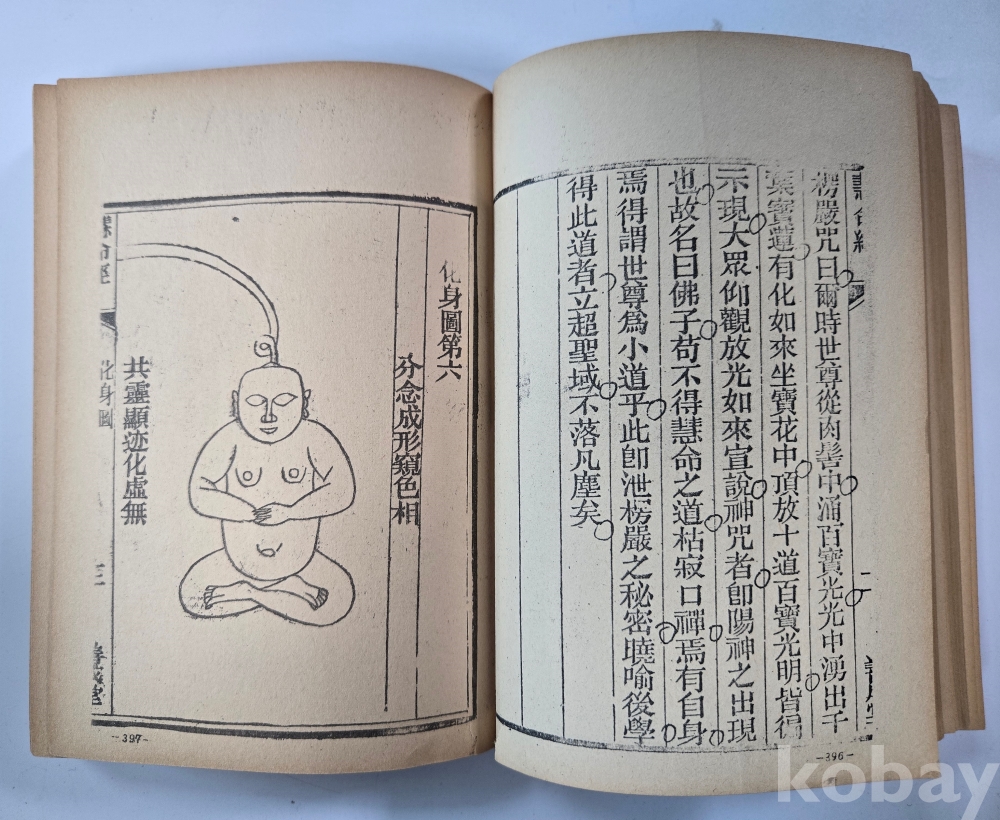 楞嚴咒曰爾時世尊從肉髻中涌百寶光光中湧出千
葉寶蓮有化如來坐寶花中頂放十道百寶光明皆徧
示現大眾仰觀放光如來宣說神咒者即陽神之出現
也故名曰佛子苟不得慧命之道枯寂口禪焉有自身
焉得謂世尊為小道乎此即泄楞嚴之秘密曉喻後學
得此道者立超聖域不落凡塵矣
-396-
化身圖第六
分念成形窺色相
共靈顯迹化虛無
慧命經
化身圖
三
-397-
kobay